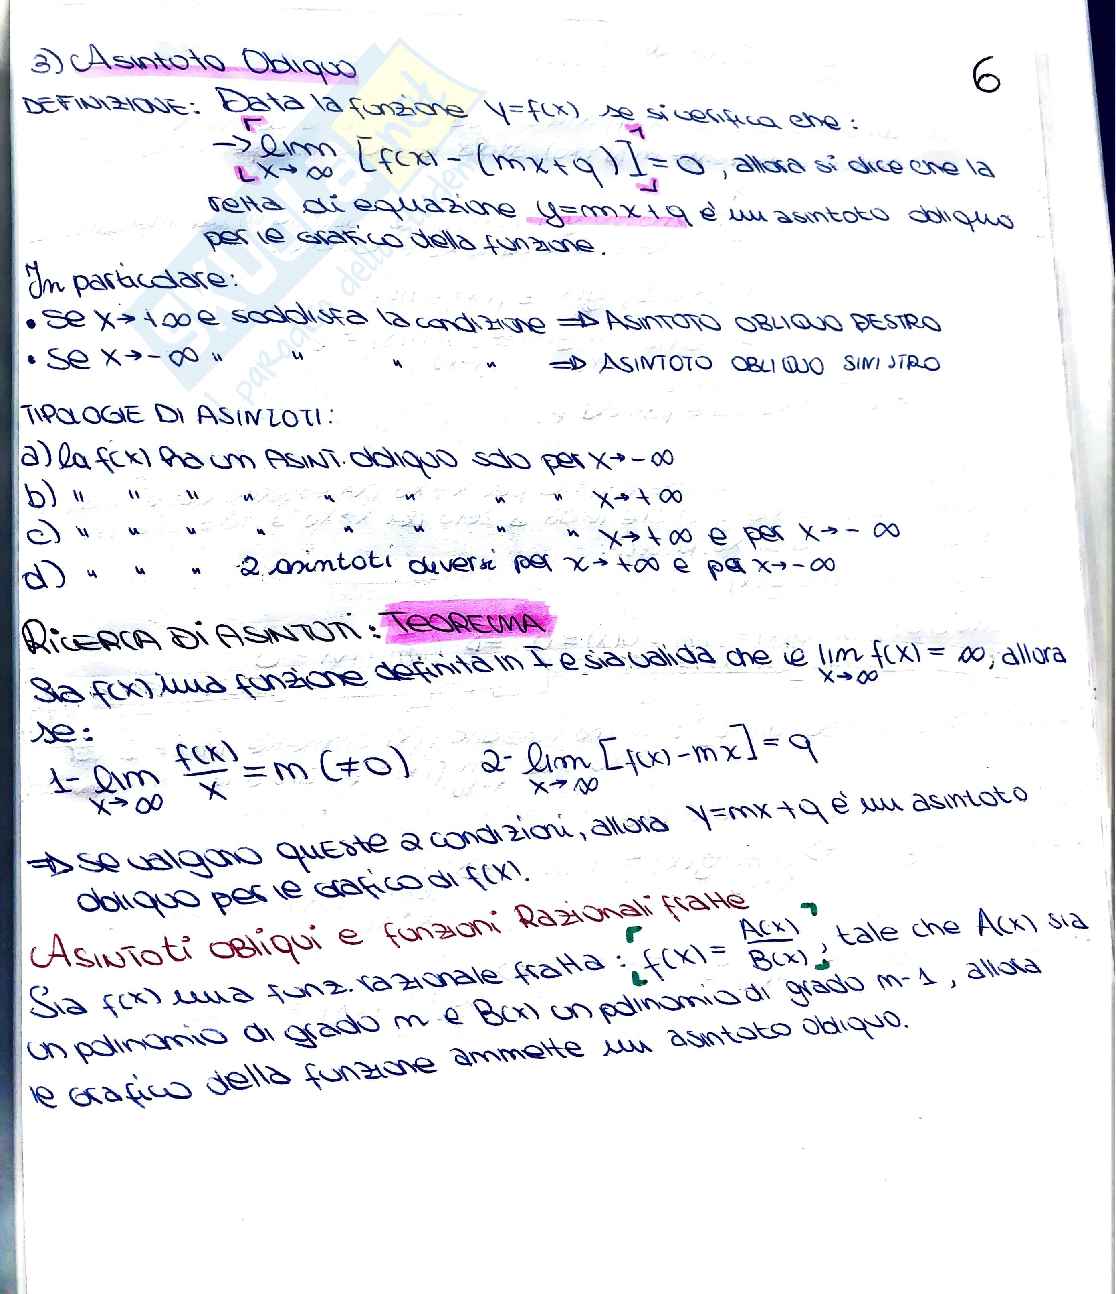 6
3) Asintoto Obliquo
DEFINIZIONE: Data la funzione y=f(x), se si verifica che:
→ lim x→∞ [f(x) - (mx+q)] = 0, allora si dice che la
retta di equazione y=mx+q è un asintoto obliquo
per il grafico della funzione.
In particolare:
• se x→+∞ e soddisfa la condizione ⇒ ASINTOTO OBLIQUO DESTRO
• se x→-∞ " " " " ⇒ ASINTOTO OBLIQUO SINISTRO
TIPOLOGIE DI ASINTOTI:
a) la f(x) ha un ASINT. obliquo solo per x→-∞
b) " " " " " " " " x→+∞
c) " " " " " " " " x→+∞ e per x→-∞
d) " " " 2 asintoti diversi per x→+∞ e per x→-∞
RICERCA DI ASINTOTI: TEOREMA
Sia f(x) una funzione definita in I e sia valida che il lim x→∞ f(x) = ∞, allora
se:
1- lim x→∞ f(x)/x = m (≠0) 2- lim x→∞ [f(x)-mx] = q
⇒ se valgono queste 2 condizioni, allora y=mx+q è un asintoto
obliquo per il grafico di f(x).
Asintoti obliqui e funzioni Razionali fratte
Sia f(x) una funz. razionale fratta: f(x) = A(x)/B(x), tale che A(x) sia
un polinomio di grado m e B(x) un polinomio di grado m-1, allora
il grafico della funzione ammette un asintoto obliquo.